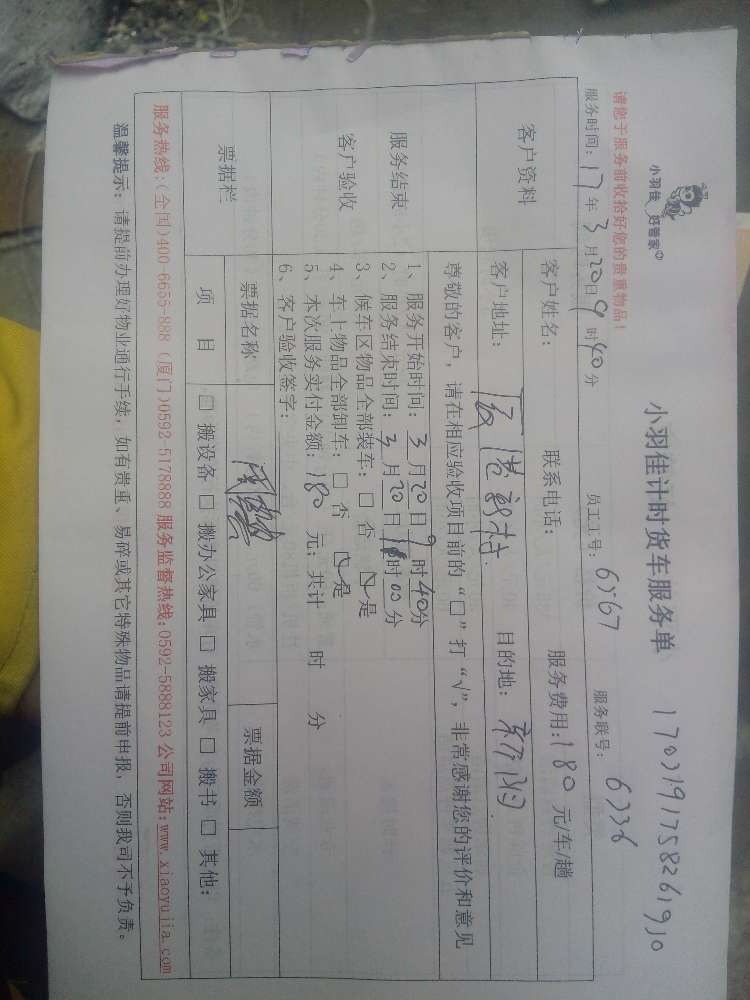 小羽佳 好管家
小羽佳计时货车服务单
请您于服务前收拾好您的贵重物品！
服务时间：17年3月20日9时40分 员工工号： 服务联号：6236
客户资料
客户姓名： 联系电话： 服务费用：180元/车/趟
客户地址： 目的地：
尊敬的客户，请在相应验收项目前的“□”打“√”，非常感谢您的评价和意见
服务结束
客户验收
1、服务开始时间：3月20日9时40分
2、服务结束时间：3月20日11时00分
3、候车区物品全部装车：□否 ☑是
4、车上物品全部卸车：□否 ☑是
5、本次服务实付金额：180元；共计 时 分
6、客户验收签字：
票据栏
票据名称 票据金额
项目 □搬设备 □搬办公家具 □搬家具 □搬书 □其他：
服务热线：(全国)400-6655-888 (厦门)0592-5178888 服务监督热线：0592-5888123 公司网站：www.xiaoyujia.com
温馨提示：请提前办理好物业通行手续，如有贵重、易碎或其它特殊物品请提前申报，否则我司不予负责。